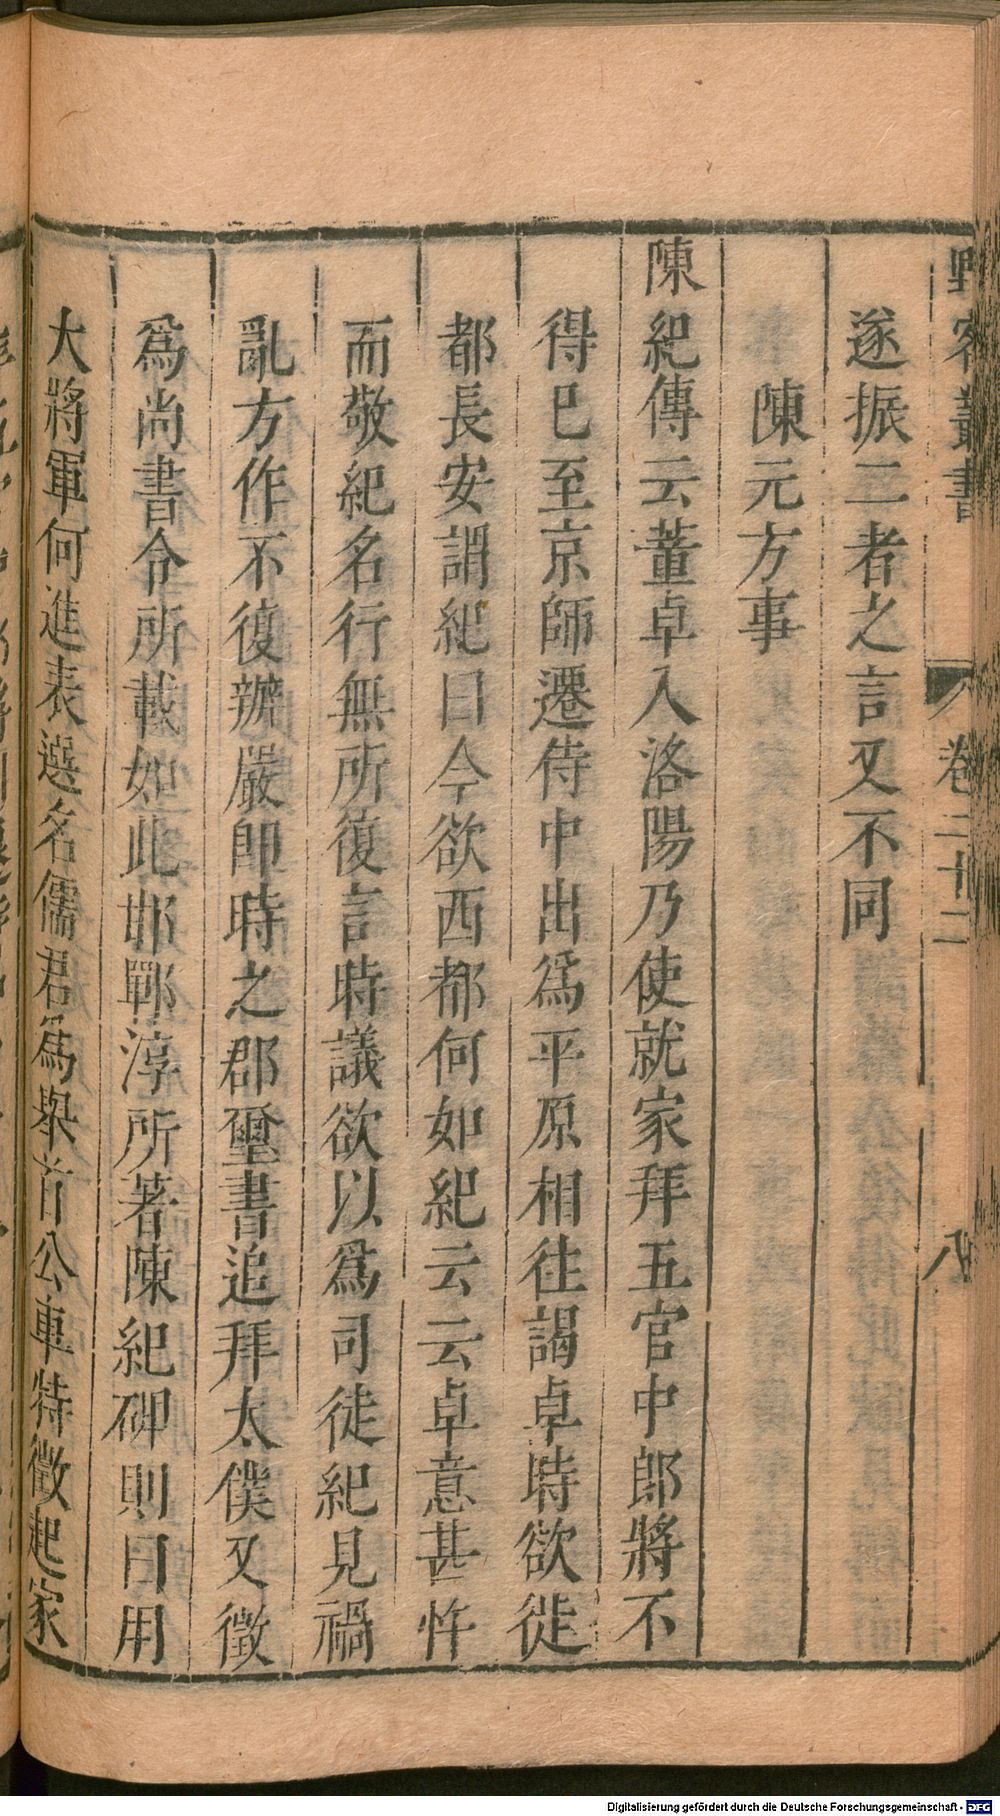 野客叢書 卷二十二 八
遂振二者之言又不同
陳元方事
陳紀傳云董卓入洛陽乃使就家拜五官中郎將不
得已至京師遷侍中出爲平原相往謁卓時欲徙
都長安謂紀曰今欲西都何如紀云云卓意甚忤
而敬紀名行無所復言時議欲以爲司徒紀見禍
亂方作不復辦嚴即時之郡璽書追拜太僕又徵
爲尚書令所載如此邯鄲淳所著陳紀碑則曰用
大將軍何進表選名儒君爲舉首公車特徵起家
Digitalisierung gefördert durch die Deutsche Forschungsgemeinschaft - DFG